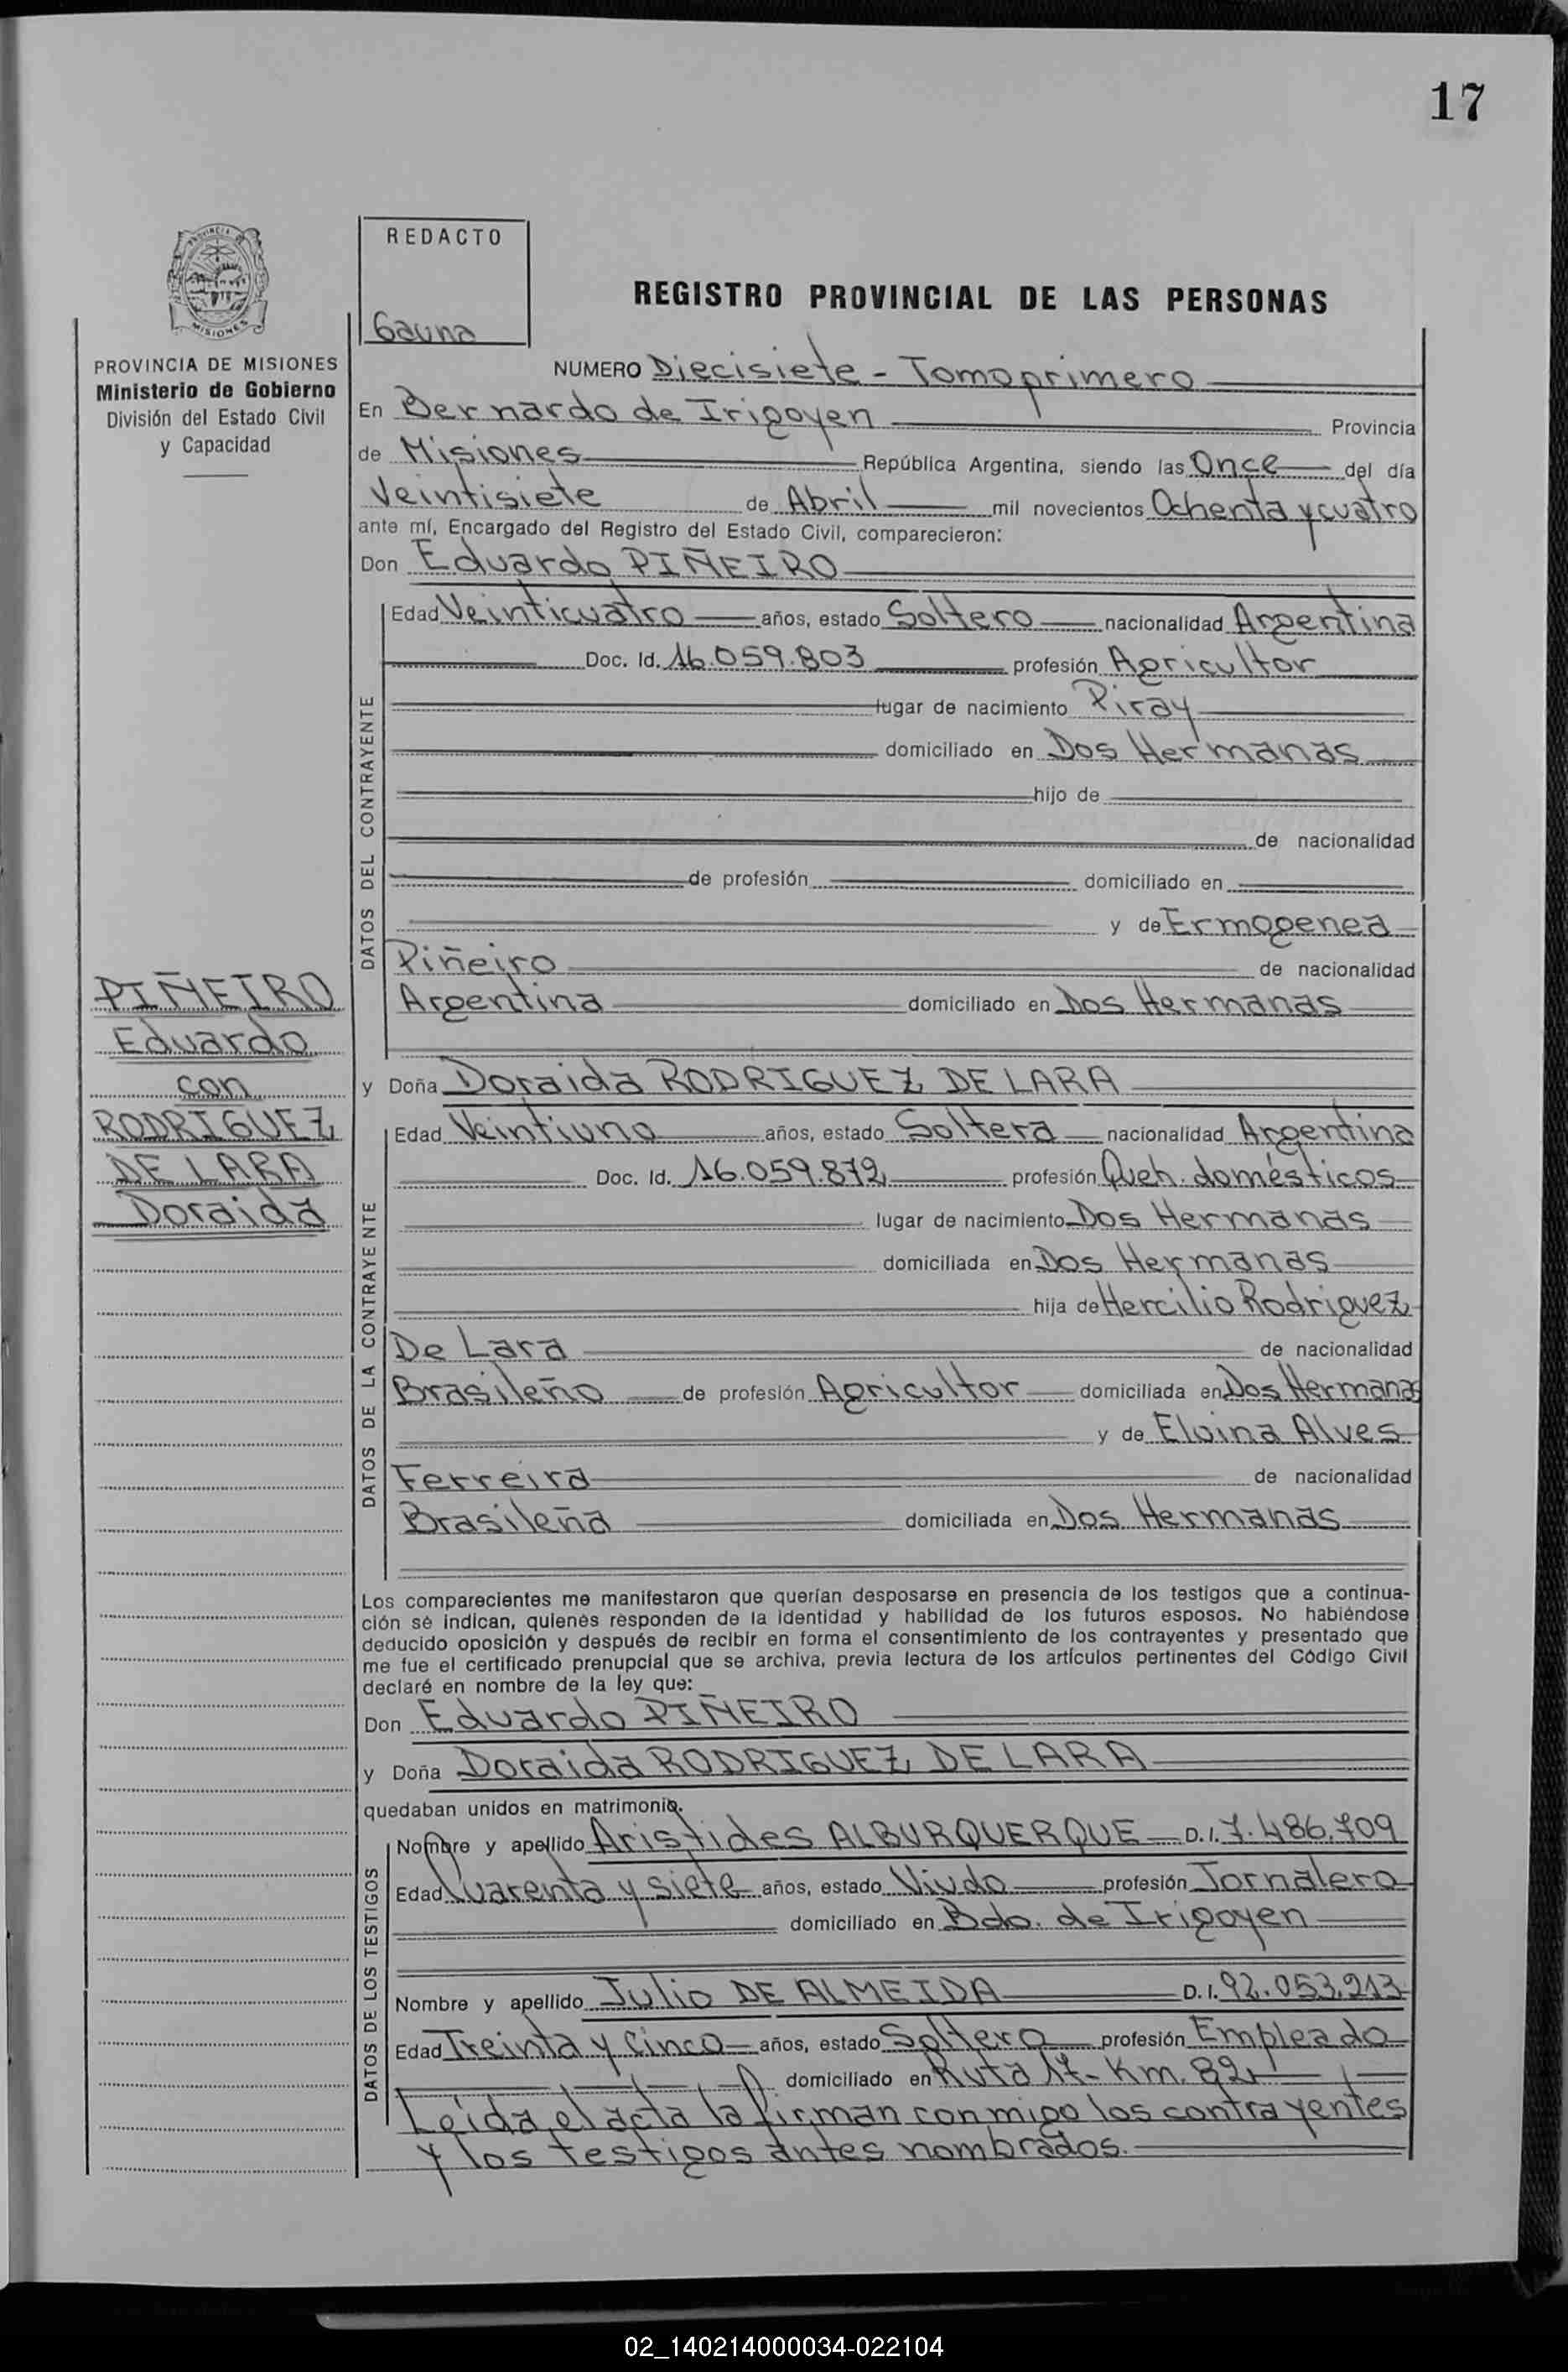 17
PROVINCIA
MISIONES
REDACTO
Gauna
REGISTRO PROVINCIAL DE LAS PERSONAS
PROVINCIA DE MISIONES
Ministerio de Gobierno
División del Estado Civil
y Capacidad
NUMERO Diecisiete - Tomo primero
En Bernardo de Irigoyen Provincia
de Misiones República Argentina, siendo las Once del día
Veintisiete de Abril mil novecientos Ochenta y cuatro
ante mí, Encargado del Registro del Estado Civil, comparecieron:
Don Eduardo PIÑEIRO
DATOS DEL CONTRAYENTE
Edad Veinticuatro años, estado Soltero nacionalidad Argentina
Doc. Id. 16.059.803 profesión Agricultor
lugar de nacimiento Piray
domiciliado en Dos Hermanas
hijo de
de nacionalidad
de profesión domiciliado en
y de Ermogenea
Piñeiro de nacionalidad
Argentina domiciliado en Dos Hermanas
PIÑEIRO
Eduardo
con
RODRIGUEZ
DE LARA
Doraida
y Doña Doraida RODRIGUEZ DE LARA
DATOS DE LA CONTRAYENTE
Edad Veintiuno años, estado Soltera nacionalidad Argentina
Doc. Id. 16.059.872 profesión Queh. domésticos
lugar de nacimiento Dos Hermanas
domiciliada en Dos Hermanas
hija de Hercilio Rodriguez
De Lara de nacionalidad
Brasileño de profesión Agricultor domiciliada en Dos Hermanas
y de Eloina Alves
Ferreira de nacionalidad
Brasileña domiciliada en Dos Hermanas
Los comparecientes me manifestaron que querían desposarse en presencia de los testigos que a continua-
ción se indican, quienes responden de la identidad y habilidad de los futuros esposos. No habiéndose
deducido oposición y después de recibir en forma el consentimiento de los contrayentes y presentado que
me fue el certificado prenupcial que se archiva, previa lectura de los artículos pertinentes del Código Civil
declaré en nombre de la ley que:
Don Eduardo PIÑEIRO
y Doña Doraida RODRIGUEZ DE LARA
quedaban unidos en matrimonio.
DATOS DE LOS TESTIGOS
Nombre y apellido Aristides ALBURQUERQUE D.I. 7.486.709
Edad Cuarenta y siete años, estado Viudo profesión Jornalero
domiciliado en Bdo. de Irigoyen
Nombre y apellido Julio DE ALMEIDA D.I. 92.053.213
Edad Treinta y Cinco años, estado Soltero profesión Empleado
domiciliado en Ruta 17- Km. 82
Leída el acta la firman conmigo los contrayentes
y los testigos antes nombrados.
02_140214000034-022104